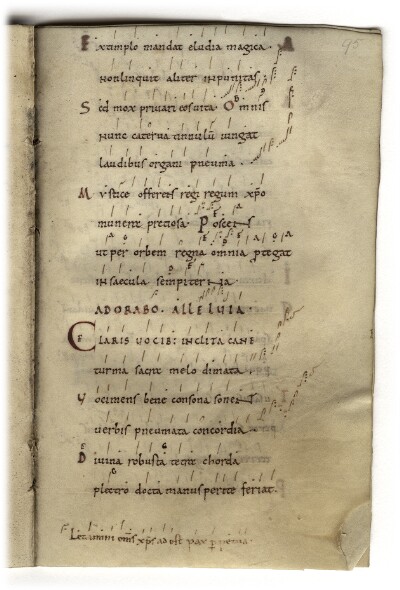 Extimplo mandat eludia magica. A
95
nonlinquit aliter inpunitas.
Sed mox privari cosueta. Omnis
nunc caterva tinnulū iungat
laudibus organi pneuma.
Mystice offerens regi regum xp̄o
munera preciosa. Poscens
ut per orbem regna omnia ptegat
insaecula sempiterna
ADORABO. ALLELUIA.
CLARIS VOCIB: INCLITA CANE
turma sacra melodimata.
Yocimens bene consona sonet
verbis pneumata concordia
Divina robusta tecta chorda
plectro docta manus porrite feriat.
omīs xp̄s ad est pax